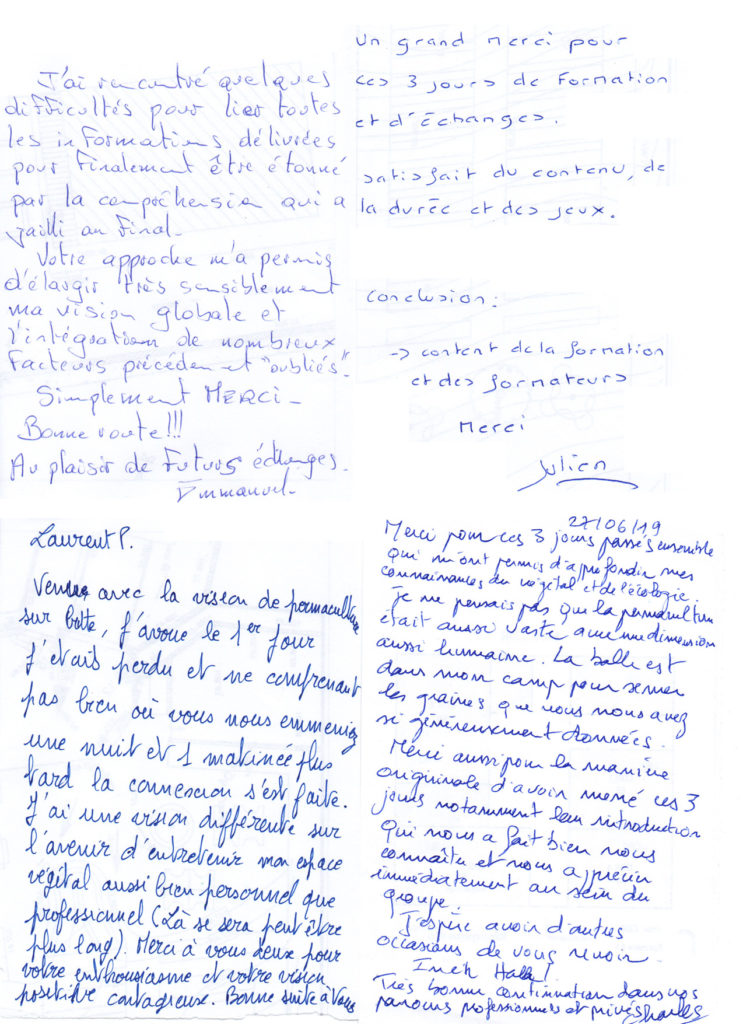 J'ai rencontré quelques
difficultés pour lier toutes
les informations délivrées
pour finalement être étonné
par la compréhension qui a
jailli au final.
Votre approche m'a permis
d'élargir très sensiblement
ma vision globale et
l'intégration de nombreux
facteurs précédement "oubliés".
Simplement MERCI -
Bonne route!!!
Au plaisir de futurs échanges.
Emmanuel.
un grand merci pour
ces 3 jours de formation
et d'échanges.
satisfait du contenu, de
la durée et des jeux.
Conclusion:
-> content de la formation
et des formateurs
Merci
Julien
Laurent P.
Venue avec la vision de permaculture
sur butte, j'avoue le 1er jour
j'étais perdu et ne comprenant
pas bien où vous nous emmeniez
une nuit et 1 matinée plus
tard la connexion s'est faite.
J'ai une vision différente sur
l'avenir d'entretenir mon espace
végétal aussi bien personnel que
professionnel (Là se sera peut être
plus long). Merci à vous deux pour
votre enthousiasme et votre vision
positive contagieuse. Bonne suite à Vous
27/06/19
Merci pour ces 3 jours passés ensemble
qui m'ont permis d'approfondir mes
connaissances du végétal et de l'écologie.
Je ne pensais pas que la permaculture
était aussi vaste avec une dimension
aussi humaine. La balle est
dans mon camp pour semer
les graines que vous nous avez
si généreusement données.
Merci aussi pour la manière
originale d'avoir mené ces 3
jours notamment leur introduction
qui nous a fait bien nous
connaître et nous apprécier
immédiatement au sein du
groupe.
J'espère avoir d'autres
occasions de vous revoir.
Très bonne continuation dans vos
parcours professionnels et privés Charles